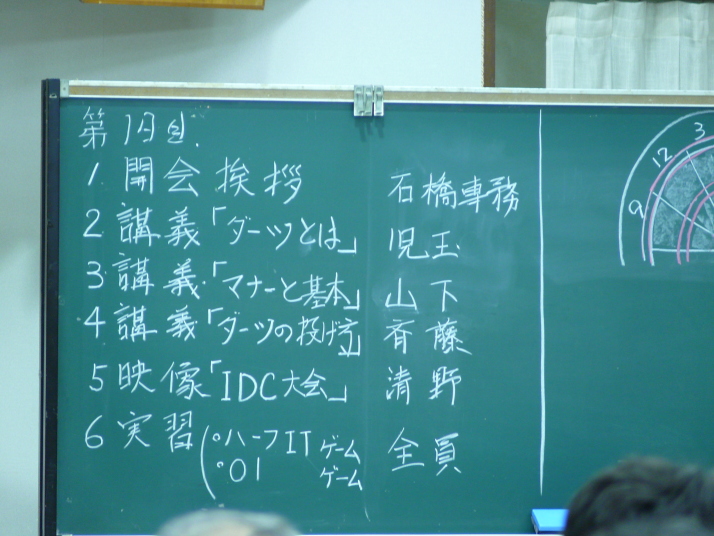 第1日目.
1 開会挨拶 石橋専務
2 講義「ダーツとは」 児玉
3 講義「マナーと基本」 山下
4 講義「ダーツの投げ方」 斉藤
5 映像「IDC大会」 清野
6 実習 (。ハーフITゲーム 全員
。01 ゲーム
9 12 3